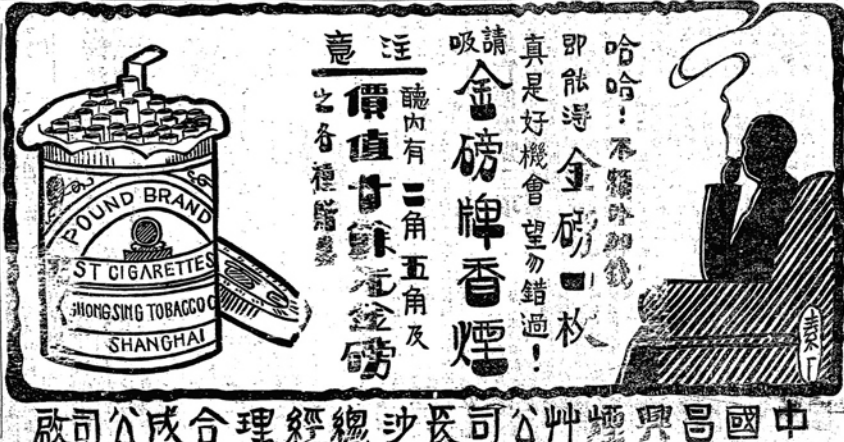 哈哈！不
即能得金磅一枚
真是好機會 望勿錯過！
請吸
金磅牌香煙
注意
聽內有二角五角及
價值十餘元金磅
之各種
POUND BRAND
ST CIGARETTES
HONGSING TOBACCO C
SHANGHAI
中國昌興煙艸公司長沙總經理合成公司啟